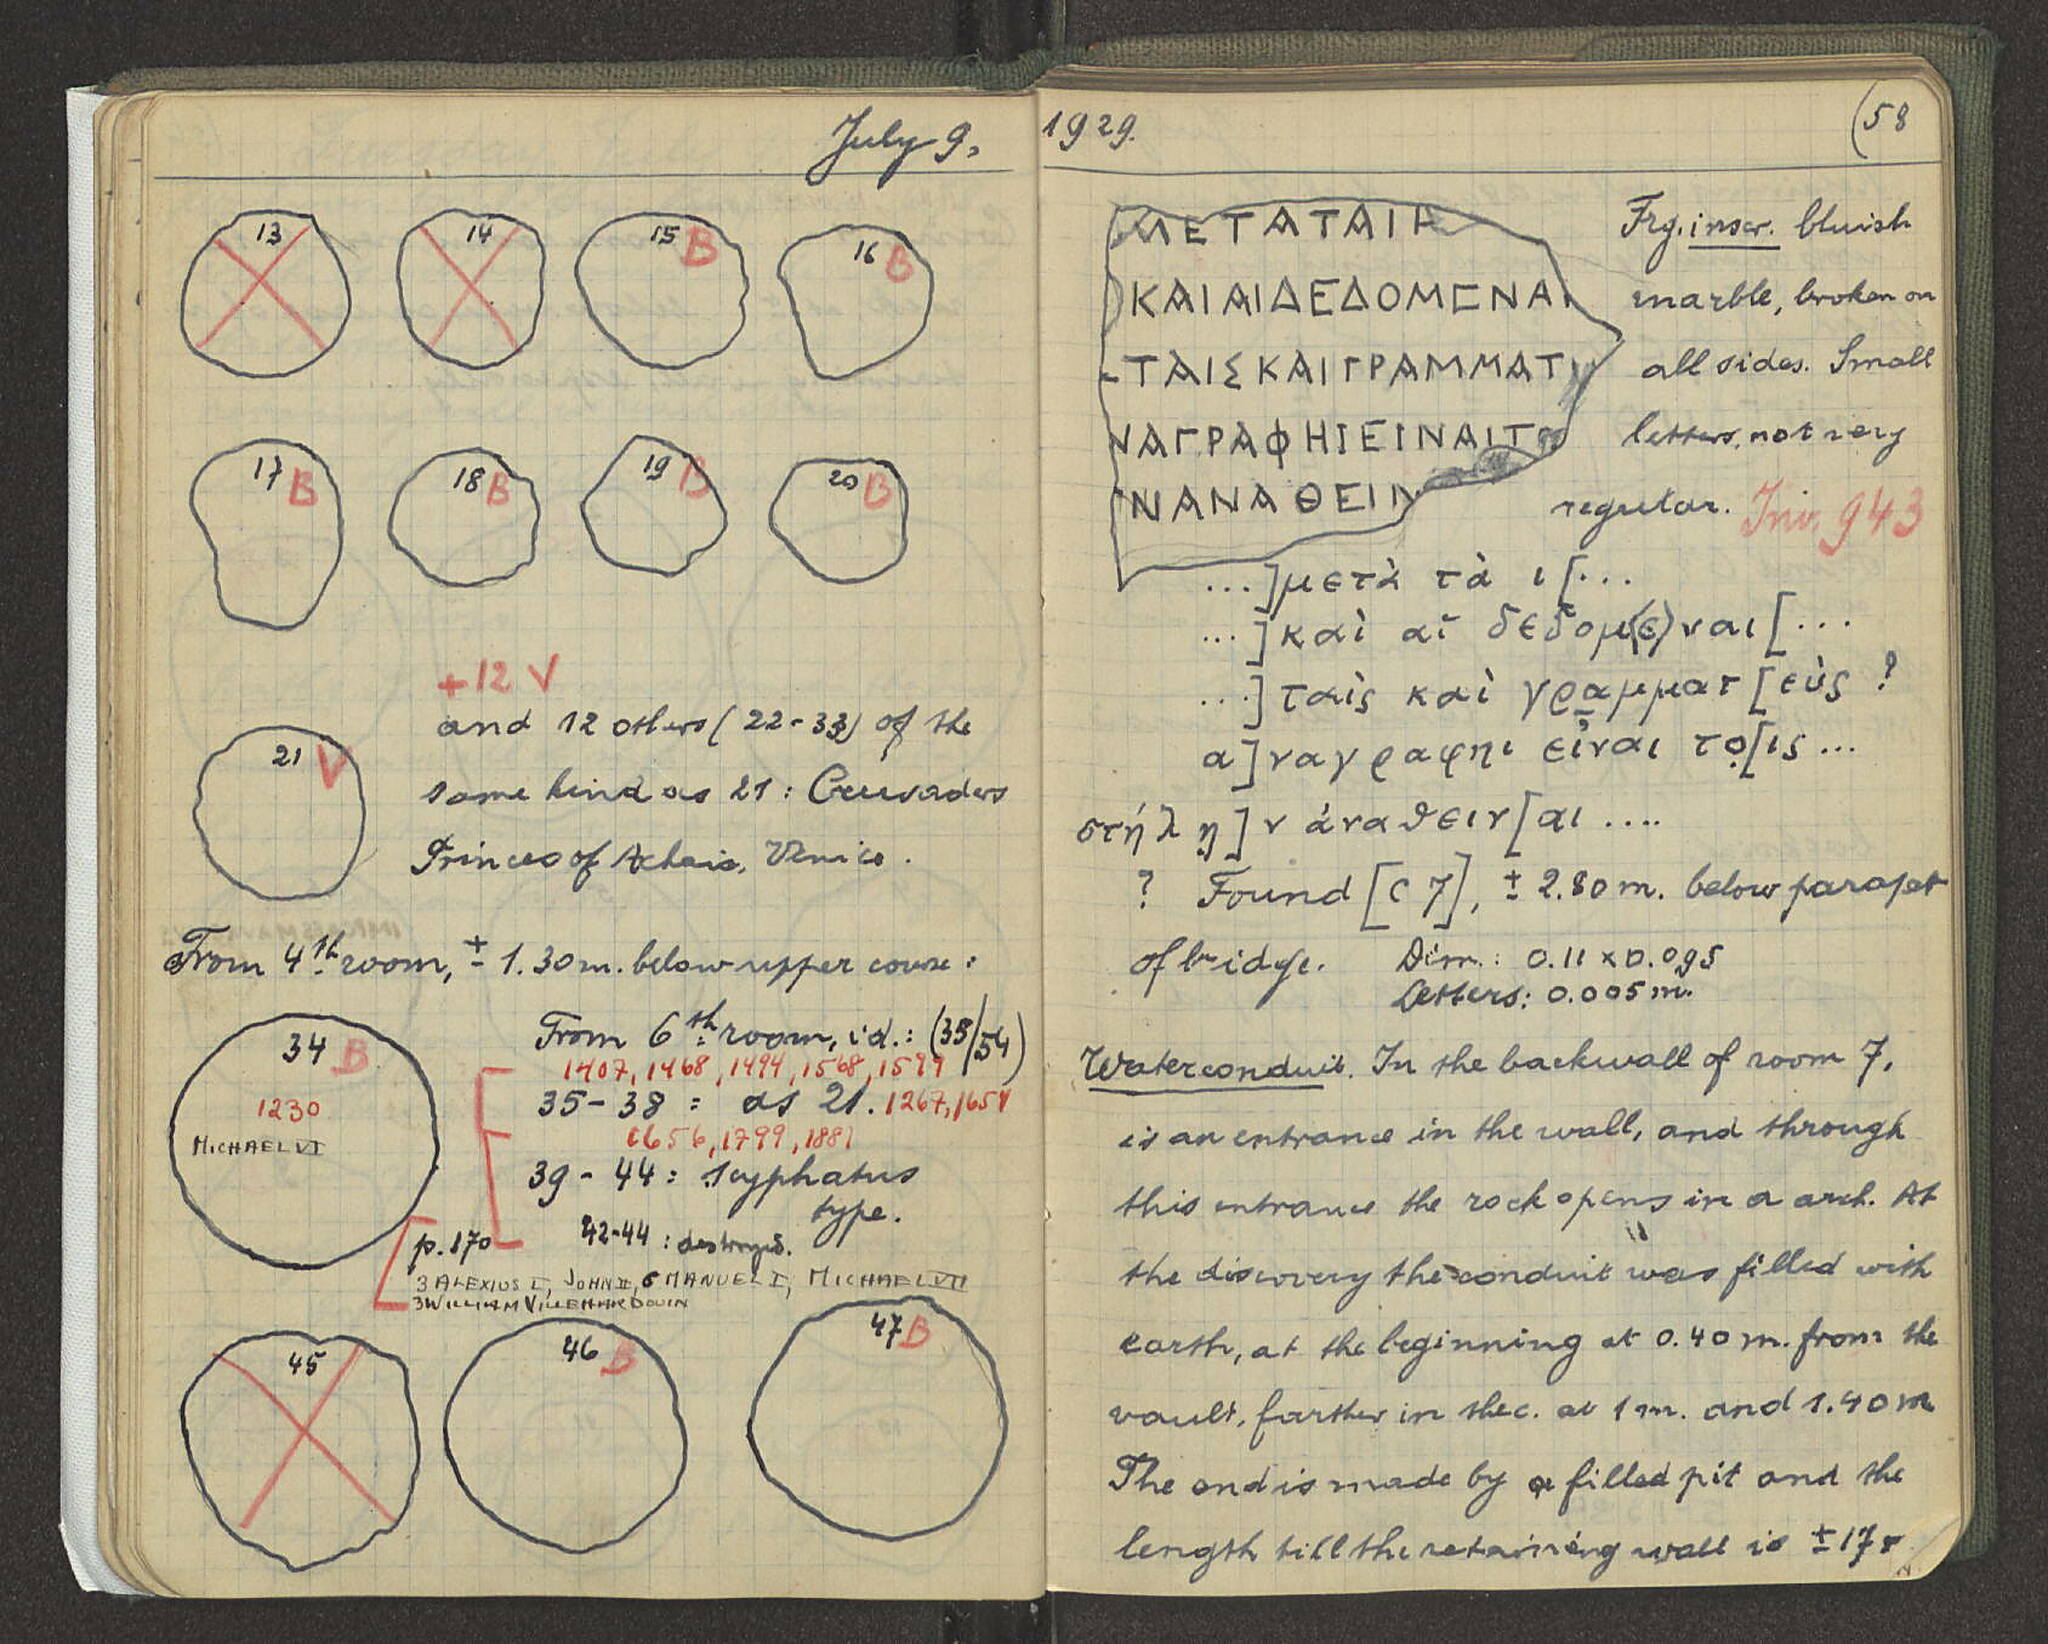 July 9,
13
14
15 B
16 B
17 B
18 B
19 B
20 B
+12 V
21 V
and 12 others (22-33) of the
same kind as 21: Crusaders
Princes of Achaia, Venice.
From 4th room, ± 1.30 m. below upper course:
34 B
1230
MICHAEL VI
From 6th room, id.: (35/54)
1407, 1468, 1494, 1568, 1599
35-38 : as 21. 1267, 1651
1656, 1799, 1881
39-44: scyphatus
type.
42-44 : destroyed.
p. 170
3 ALEXIUS I, JOHN II, 6 MANUEL I, MICHAEL VII
3 WILLIAM VILLEHARDOUIN
45
46 B
47 B
1929.
(58
ΜΕΤΑΤΑΙ
ΚΑΙΑΙΔΕΔΟΜΕΝΑΙ
ΤΑΙΣΚΑΙΓΡΑΜΜΑΤ
ΝΑΓΡΑΦΗΙΕΙΝΑΙΤΟ
ΝΑΝΑΘΕΙΝ
Frg. inscr. bluish
marble, broken on
all sides. Small
letters, not very
regular. Inv. 943
...]μετὰ τὰ ι[...
...]καὶ αἱ δεδομ(ε)ναι[...
...]ταις καὶ γραμματ[εὺς ?
α]ναγραφηι εἶναι το[ις ...
στήλη]ν ἀναθειν[αι ....
? Found [C 7], ± 2.80 m. below parapet
of bridge. Dim.: 0.11 x 0.095
Letters: 0.005 m.
Waterconduit. In the backwall of room 7,
is an entrance in the wall, and through
this entrance the rock opens in a arch. At
the discovery the conduit was filled with
earth, at the beginning at 0.40 m. from the
vault, farther in the c. at 1 m. and 1.40 m
The end is made by a filled pit and the
length till the retaining wall is ± 17